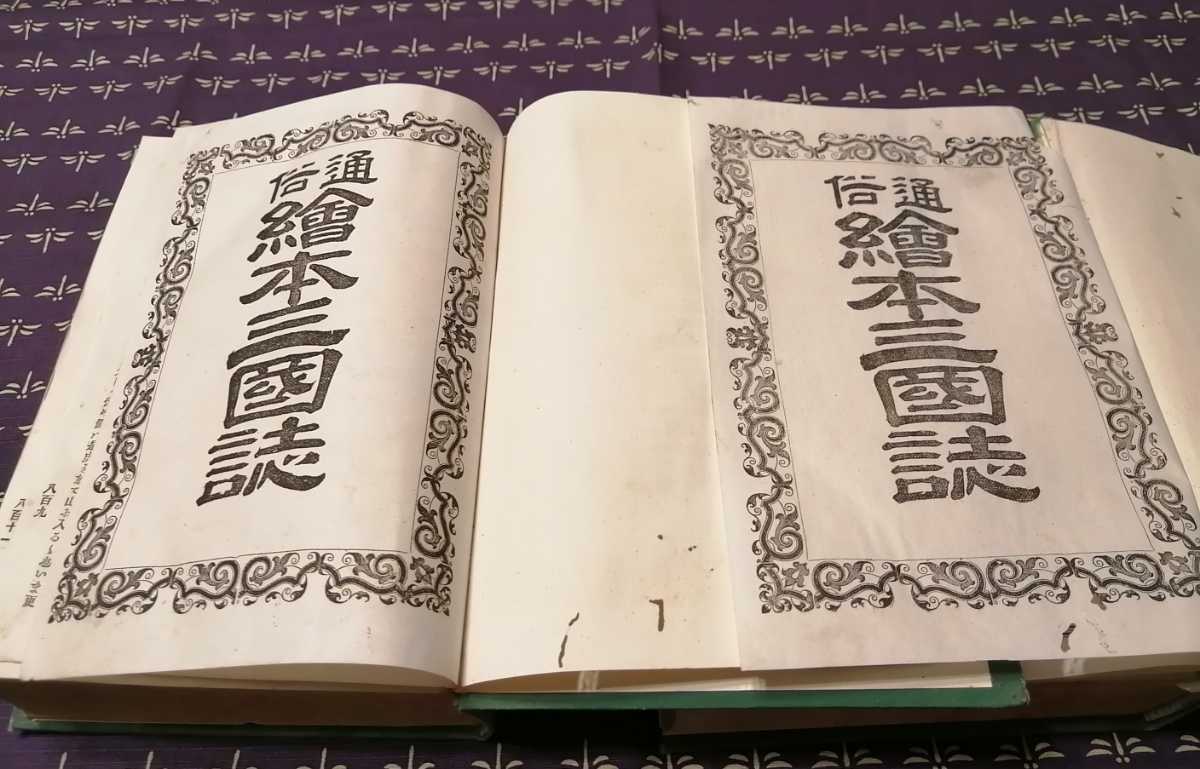 通俗
繪本三國誌
通俗
繪本三國誌
八百九
八百十一